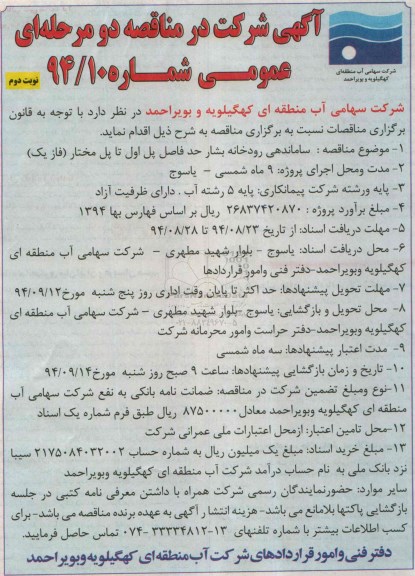 آگهی شرکت در مناقصه دو مرحله‌ای
عمومی شماره ۹۴/۱۰
نوبت دوم
شرکت سهامی آب منطقه‌ای
کهگیلویه و بویراحمد
شرکت سهامی آب منطقه ای کهگیلویه و بویراحمد در نظر دارد با توجه به قانون
برگزاری مناقصات نسبت به برگزاری مناقصه به شرح ذیل اقدام نماید.
۱- موضوع مناقصه : ساماندهی رودخانه بشار حد فاصل پل اول تا پل مختار (فاز یک)
۲- مدت ومحل اجرای پروژه: ۹ ماه شمسی – یاسوج
۳- پایه ورشته شرکت پیمانکاری: پایه ۵ رشته آب . دارای ظرفیت آزاد
۴- مبلغ برآورد پروژه : ۲۶۸۳۷۴۲۰۸۷۰ ریال بر اساس فهارس بها ۱۳۹۴
۵- مهلت دریافت اسناد: از تاریخ ۹۴/۰۸/۲۳ تا ۹۴/۰۸/۲۸
۶- محل دریافت اسناد: یاسوج - بلوار شهید مطهری – شرکت سهامی آب منطقه ای
کهگیلویه وبویراحمد-دفتر فنی وامور قراردادها
۷- مهلت تحویل پیشنهادها: حد اکثر تا پایان وقت اداری روز پنج شنبه مورخ۹۴/۰۹/۱۲
۸- محل تحویل و بازگشایی: یاسوج -بلوار شهید مطهری – شرکت سهامی آب منطقه ای
کهگیلویه وبویراحمد-دفتر حراست وامور محرمانه شرکت
۹- مدت اعتبار پیشنهادها: سه ماه شمسی
۱۰- تاریخ و زمان بازگشایی پیشنهادها: ساعت ۹ صبح روز شنبه مورخ۹۴/۰۹/۱۴
۱۱-نوع ومبلغ تضمین شرکت در مناقصه: ضمانت نامه بانکی به نفع شرکت سهامی آب
منطقه ای کهگیلویه وبویراحمد معادل۸۷۵۰۰۰۰۰۰ ریال طبق فرم شماره یک اسناد
۱۲-محل تامین اعتبار: ازمحل اعتبارات ملی عمرانی شرکت
۱۳- مبلغ خرید اسناد: مبلغ یک میلیون ریال به شماره حساب ۲۱۷۵۰۸۴۰۳۲۰۰۲ سیبا
نزد بانک ملی به نام حساب درآمد شرکت آب منطقه ای کهگیلویه وبویراحمد
سایر موارد: حضورنمایندگان رسمی شرکت همراه با داشتن معرفی نامه کتبی در جلسه
بازگشایی پاکتها بلامانع می باشد- هزینه انتشار آگهی به عهده برنده مناقصه می باشد- برای
کسب اطلاعات بیشتر با شماره تلفنهای ۱۳-۳۳۳۳۴۸۱۲ -۰۷۴ تماس حاصل فرمایید.
دفتر فنی و امور قراردادهای شرکت آب منطقه‌ای کهگیلویه و بویراحمد